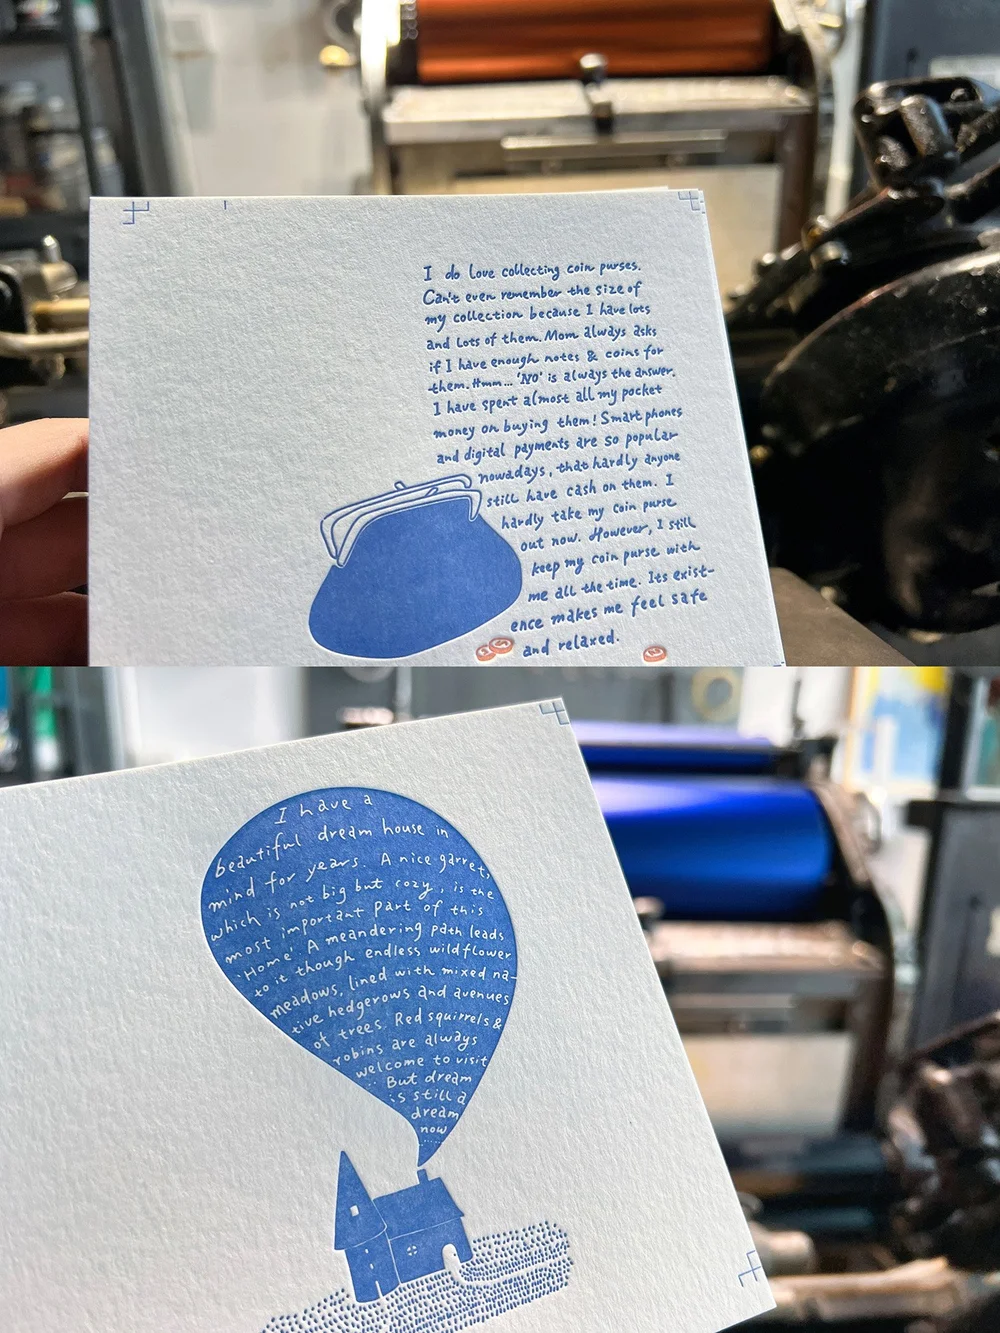 I do love collecting coin purses.
Can't even remember the size of
my collection because I have lots
and lots of them. Mom always asks
if I have enough notes & coins for
them. Hmm... 'NO' is always the answer.
I have spent almost all my pocket
money on buying them! Smart phones
and digital payments are so popular
nowadays, that hardly anyone
still have cash on them. I
hardly take my coin purse
out now. However, I still
keep my coin purse with
me all the time. Its exist-
ence makes me feel safe
and relaxed.
I have a
beautiful dream house in
mind for years. A nice garret,
which is not big but cozy, is the
most important part of this
'Home'. A meandering path leads
to it though endless wildflower
meadows, lined with mixed na-
tive hedgerows and avenues
of trees. Red squirrels &
robins are always
welcome to visit
... But dream
is still a
dream
now
......